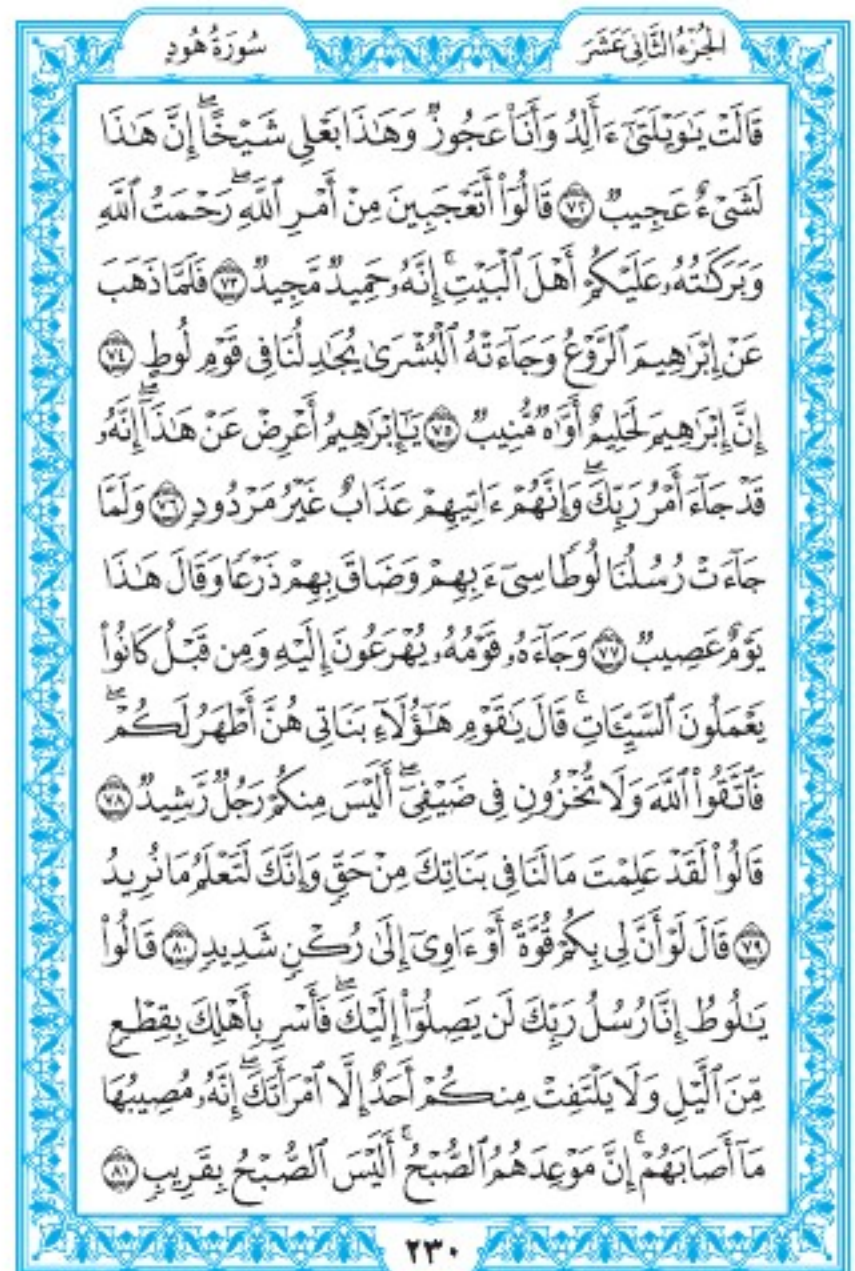 الجُزْءُ الثَّانِي عَشَرَ
سُورَةُ هُودٍ
قَالَتْ يَٰوَيْلَتَىٰٓ ءَأَلِدُ وَأَنَا۠ عَجُوزٌ وَهَٰذَا بَعْلِى شَيْخًاۖ إِنَّ هَٰذَا
لَشَىْءٌ عَجِيبٌ ٧٢ قَالُوٓا۟ أَتَعْجَبِينَ مِنْ أَمْرِ ٱللَّهِۖ رَحْمَتُ ٱللَّهِ
وَبَرَكَٰتُهُۥ عَلَيْكُمْ أَهْلَ ٱلْبَيْتِۚ إِنَّهُۥ حَمِيدٌ مَّجِيدٌ ٧٣ فَلَمَّا ذَهَبَ
عَنْ إِبْرَٰهِيمَ ٱلرَّوْعُ وَجَآءَتْهُ ٱلْبُشْرَىٰ يُجَٰدِلُنَا فِى قَوْمِ لُوطٍ ٧٤
إِنَّ إِبْرَٰهِيمَ لَحَلِيمٌ أَوَّٰهٌ مُّنِيبٌ ٧٥ يَٰٓإِبْرَٰهِيمُ أَعْرِضْ عَنْ هَٰذَآۖ إِنَّهُۥ
قَدْ جَآءَ أَمْرُ رَبِّكَۖ وَإِنَّهُمْ ءَاتِيهِمْ عَذَابٌ غَيْرُ مَرْدُودٍ ٧٦ وَلَمَّا
جَآءَتْ رُسُلُنَا لُوطًا سِىٓءَ بِهِمْ وَضَاقَ بِهِمْ ذَرْعًا وَقَالَ هَٰذَا
يَوْمٌ عَصِيبٌ ٧٧ وَجَآءَهُۥ قَوْمُهُۥ يُهْرَعُونَ إِلَيْهِ وَمِن قَبْلُ كَانُوا۟
يَعْمَلُونَ ٱلسَّيِّـَٔاتِۚ قَالَ يَٰقَوْمِ هَٰٓؤُلَآءِ بَنَاتِى هُنَّ أَطْهَرُ لَكُمْۖ
فَٱتَّقُوا۟ ٱللَّهَ وَلَا تُخْزُونِ فِى ضَيْفِىٓۖ أَلَيْسَ مِنكُمْ رَجُلٌ رَّشِيدٌ ٧٨
قَالُوا۟ لَقَدْ عَلِمْتَ مَا لَنَا فِى بَنَاتِكَ مِنْ حَقٍّ وَإِنَّكَ لَتَعْلَمُ مَا نُرِيدُ
٧٩ قَالَ لَوْ أَنَّ لِى بِكُمْ قُوَّةً أَوْ ءَاوِىٓ إِلَىٰ رُكْنٍ شَدِيدٍ ٨٠ قَالُوا۟
يَٰلُوطُ إِنَّا رُسُلُ رَبِّكَ لَن يَصِلُوٓا۟ إِلَيْكَۖ فَأَسْرِ بِأَهْلِكَ بِقِطْعٍ
مِّنَ ٱلَّيْلِ وَلَا يَلْتَفِتْ مِنكُمْ أَحَدٌ إِلَّا ٱمْرَأَتَكَۖ إِنَّهُۥ مُصِيبُهَا
مَآ أَصَابَهُمْۚ إِنَّ مَوْعِدَهُمُ ٱلصُّبْحُۚ أَلَيْسَ ٱلصُّبْحُ بِقَرِيبٍ ٨١
٢٣٠